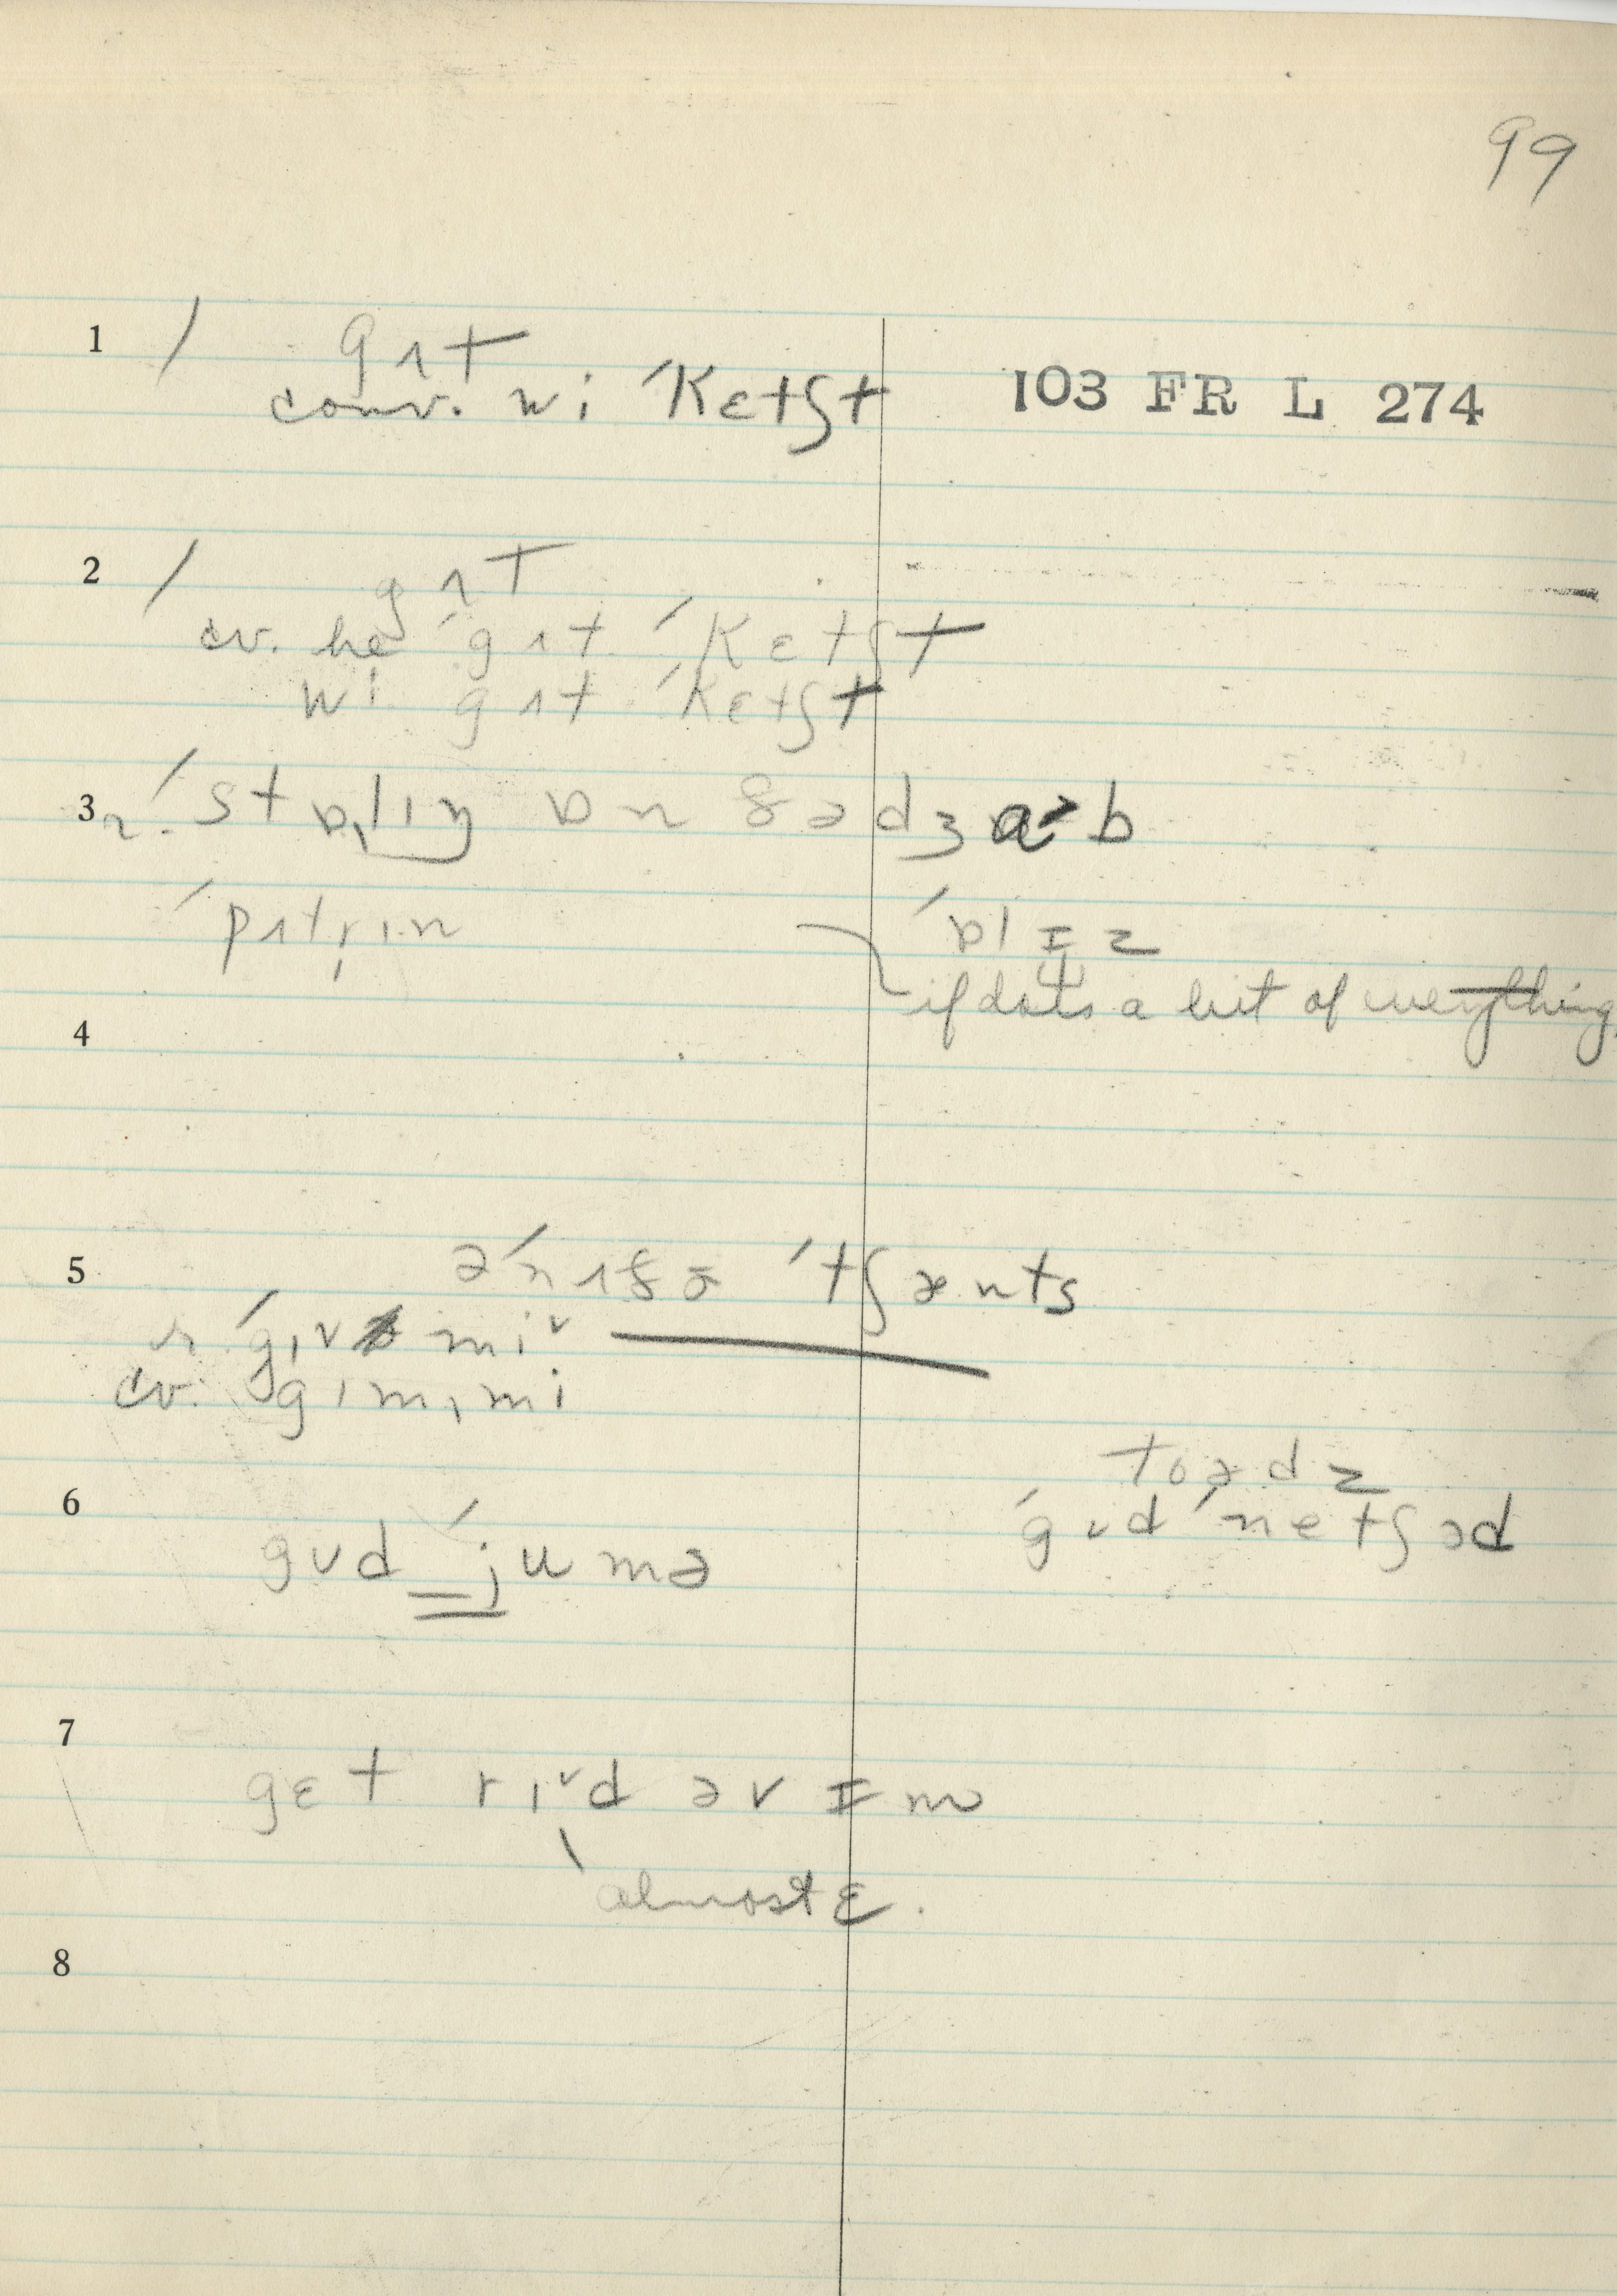 99
1 / gɪt
conv. wi ˈKɛtʃt
103 FR L 274
2 / gɪt
cv. he ˈgɪt ˈKɛtʃt
wi gɪt ˈKɛtʃt
3 r. ˈstɒlɪŋ ɒn ðə dʒɑˑb
ˈpɪtrɪn
ˈɒlɪz
if does a bit of everything.
4
5 əˈnɪðə ˈtʃænts
r. ˈgɪv miᵛ
cv. gɪmɪmi
6 toədz
gʊd ˈjumə
ˈgʊd ˈnetʃəd
7
gɛt rɪᵛd əv ɪm
almost ɛ.
8